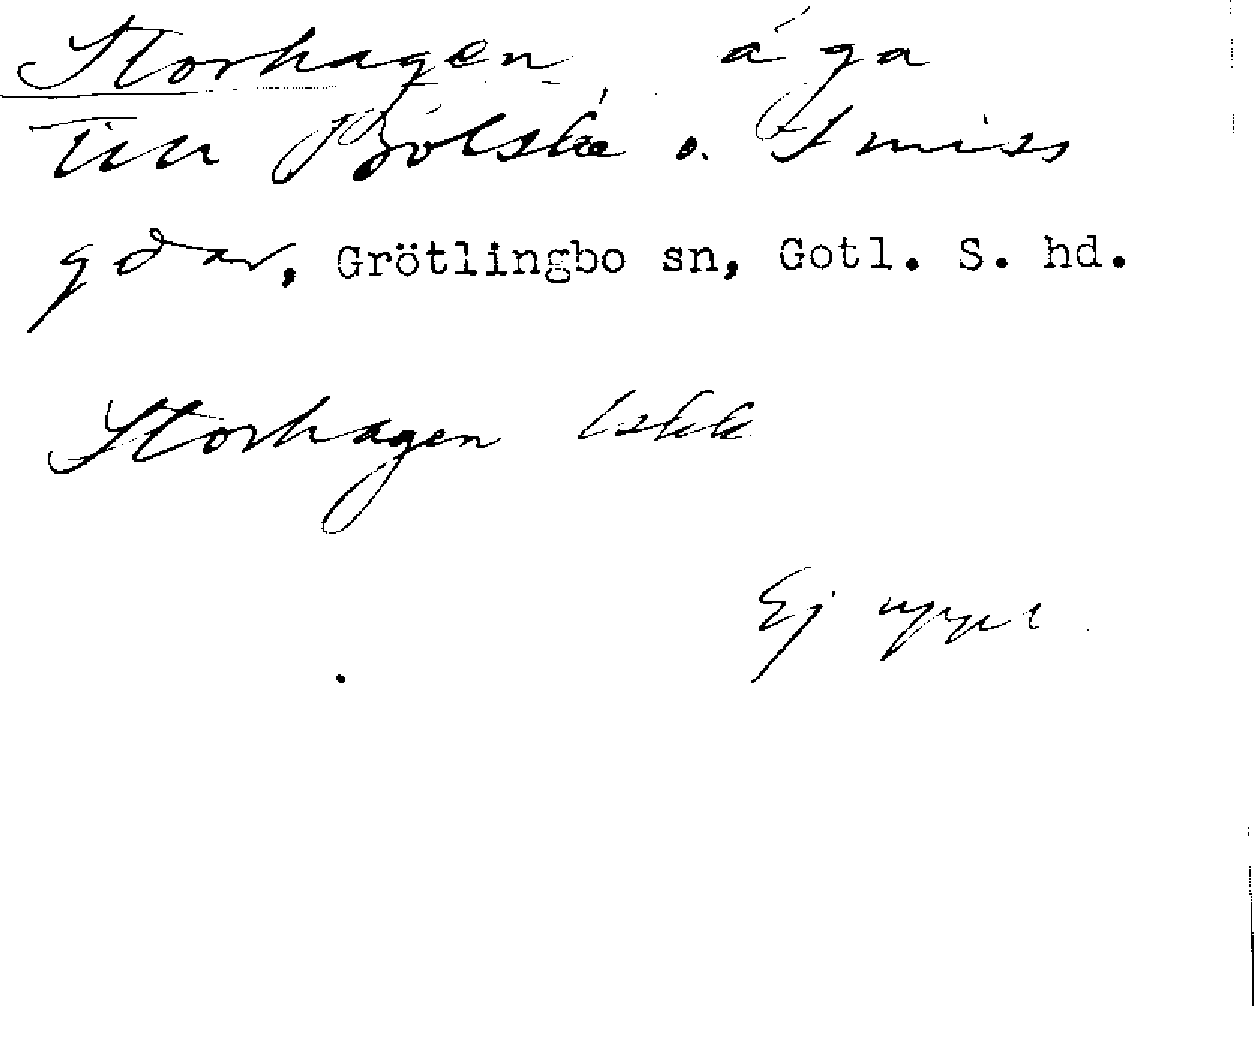 Storhagen, äga
till Bölske o. Smiss
gdar, Grötlingbo sn, Gotl. S. hd.
Storhagen lskk
Ej uppt.